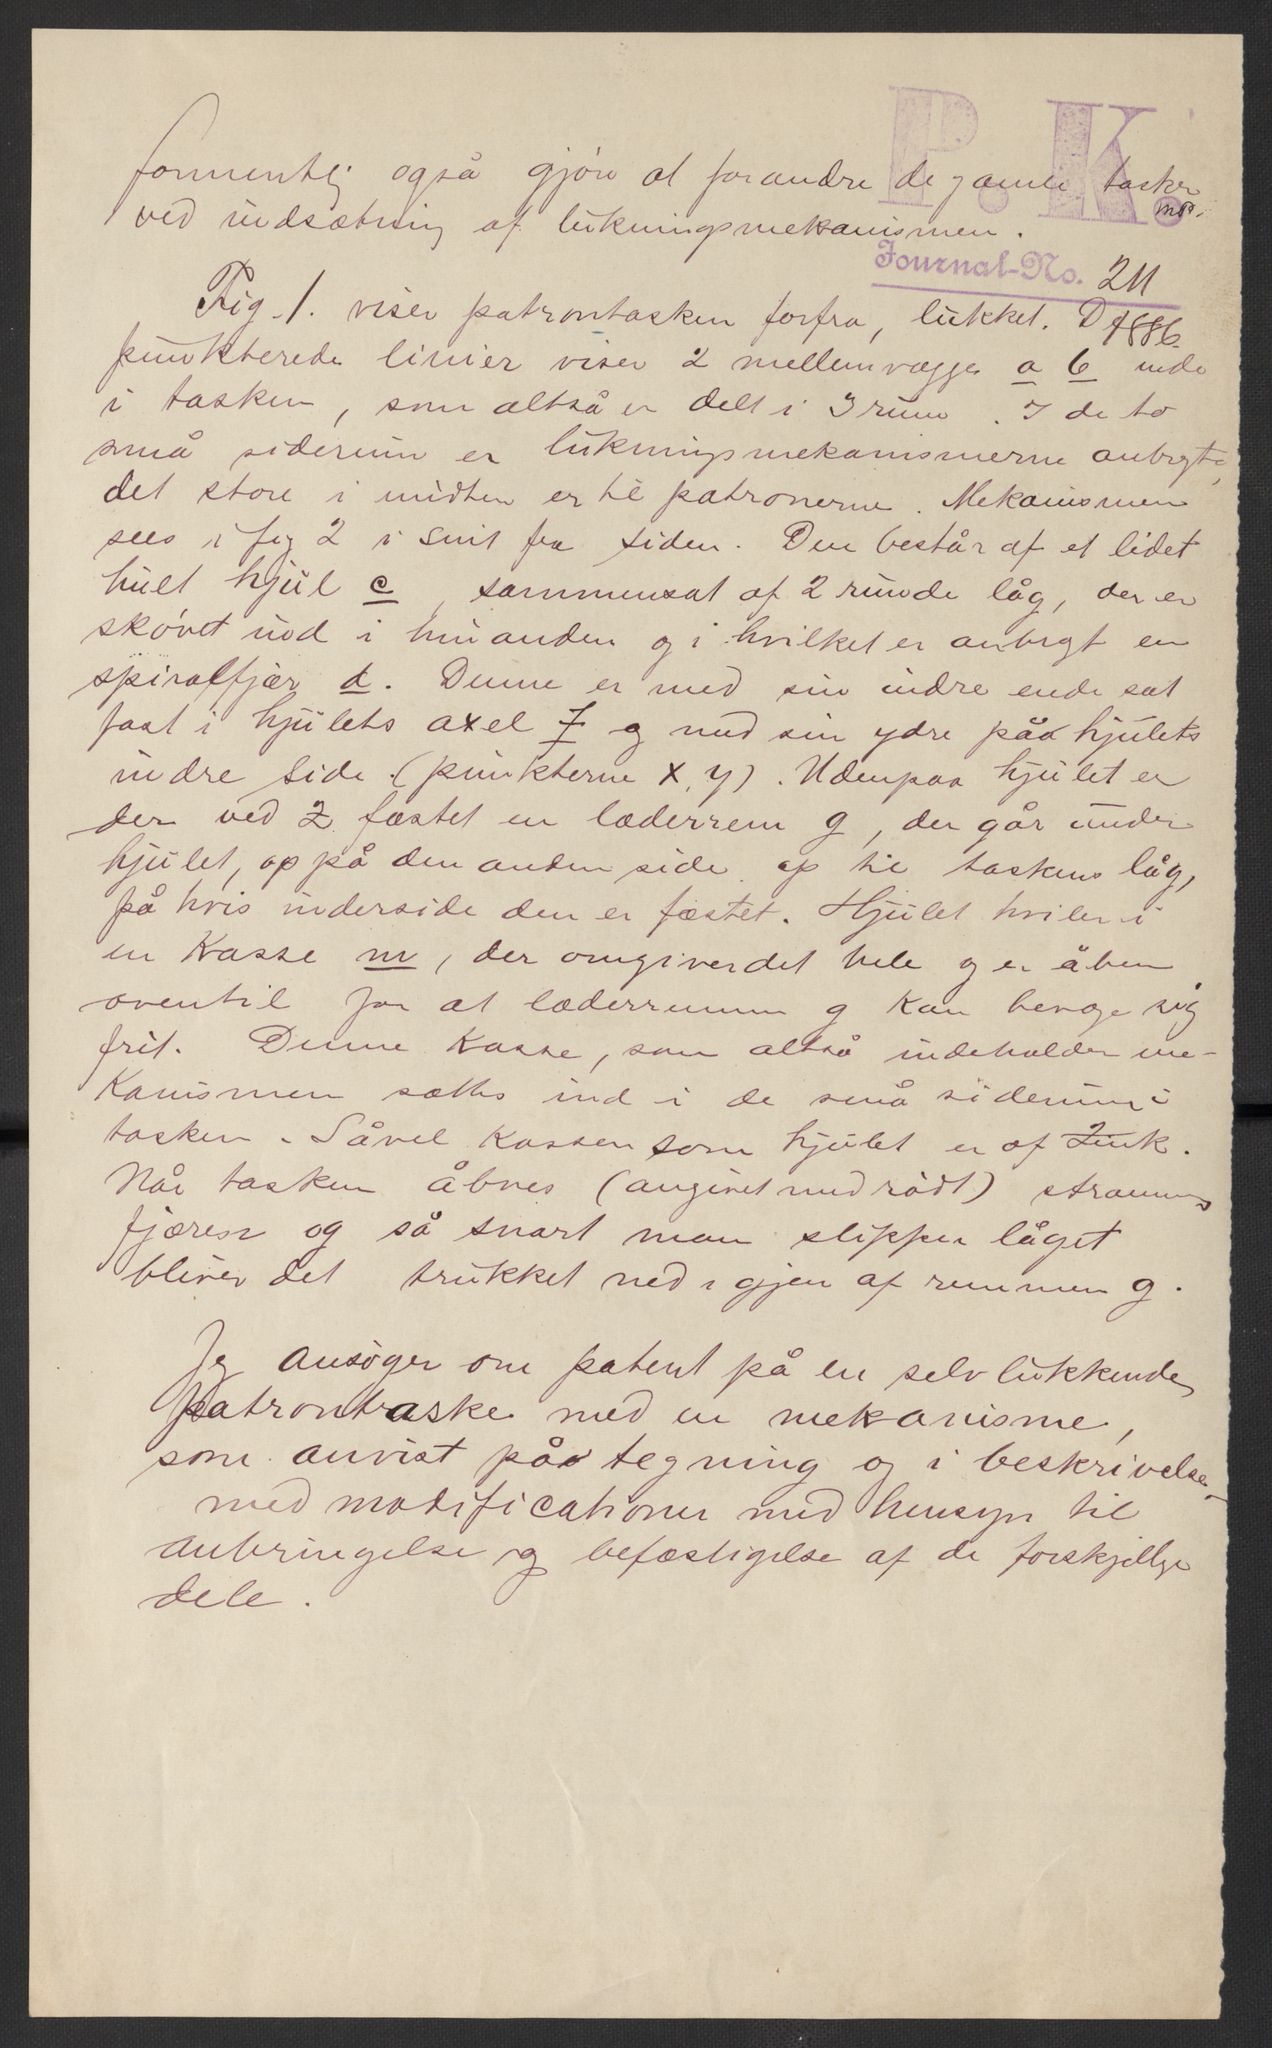 P. K.
formentlig også gjöre at forandre de gamle tasker
ved indsætning af lukningsmekanismen.
Journal-No. 211
1886
Fig. 1. viser patrontasken forfra, lukket. D
punkterede linier viser 2 mellemvægge a b inde
i tasken, som altså er delt i 3 rum. I de to
små siderum er lukningsmekanismerne anbragt,
det store i midten er til patronerne. Mekanismen
sees i fig 2 i snit fra siden. Den består af et lidet
hult hjul c, sammensat af 2 runde låg, der er
skövet ind i hinanden og i hvilket er anbragt en
spiralfjær d. Denne er med sin indre ende sat
fast i hjulets axel f og med sin ydre på hjulets
indre side (punkterne x, y). Udenpaa hjulet er
der ved z fæstet en læderrem g, der går under
hjulet, op på den anden side op til taskens låg,
på hvis inderside den er fæstet. Hjulet hviler i
en Kasse m, der omgiver det hele og er åben
oventil for at læderremmen g kan bevæge sig
frit. Denne Kasse, som altså indeholder me-
kanismen sættes ind i de små siderum i
tasken. Såvel Kassen som hjulet er af Zink.
Når tasken åbnes (angivet med rödt) strammes
fjæren og så snart man slipper låget
bliver det trukket ned igjen af remmen g.
Jeg ansöger om patent på en selvlukkende
patrontaske med en mekanisme,
som anvist på tegning og i beskrivelse
med modificationer med hensyn til
anbringelse og befæstigelse af de forskjellige
dele.